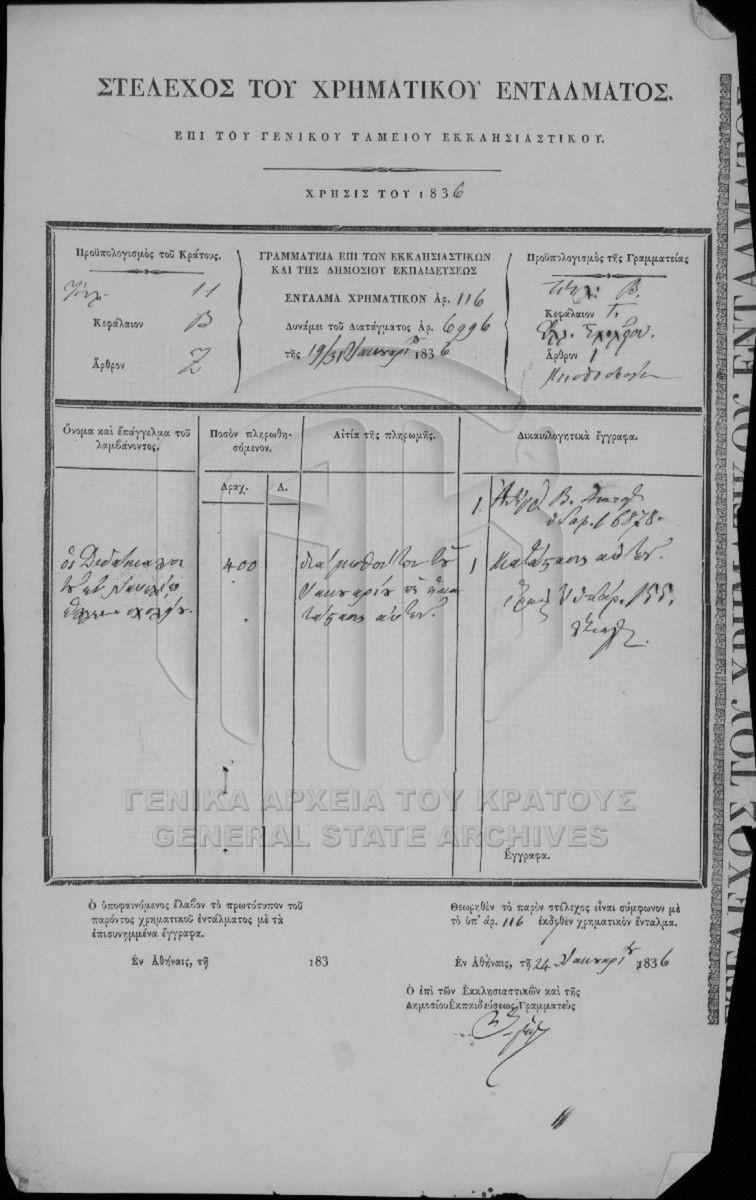 ΣΤΕΛΕΧΟΣ ΤΟΥ ΧΡΗΜΑΤΙΚΟΥ ΕΝΤΑΛΜΑΤΟΣ.
ΕΠΙ ΤΟΥ ΓΕΝΙΚΟΥ ΤΑΜΕΙΟΥ ΕΚΚΛΗΣΙΑΣΤΙΚΟΥ.
ΧΡΗΣΙΣ ΤΟΥ 1836
Προϋπολογισμὸς τοῦ Κράτους.
11
Κεφάλαιον Β
Ἄρθρον 2
ΓΡΑΜΜΑΤΕΙΑ ΕΠΙ ΤΩΝ ΕΚΚΛΗΣΙΑΣΤΙΚΩΝ
ΚΑΙ ΤΗΣ ΔΗΜΟΣΙΟΥ ΕΚΠΑΙΔΕΥΣΕΩΣ
ΕΝΤΑΛΜΑ ΧΡΗΜΑΤΙΚΟΝ Ἀρ. 116
Δυνάμει τοῦ Διατάγματος Ἀρ. 6996
τῆς 19/31 Ἰανουαρίου 1836
Προϋπολογισμὸς τῆς Γραμματείας
Τίτλ. Β.
Κεφάλαιον 1.
Ἄρθρον 1
Ὄνομα καὶ ἐπάγγελμα τοῦ
λαμβάνοντος.
Ποσὸν πληρωθη-
σόμενον.
Αἰτία τῆς πληρωμῆς.
Δικαιολογητικὰ ἔγγραφα.
Δραχ.
Λ.
1. Β.
ἀρ. 16878.
οἱ Διδάσκαλοι
τοῦ ἐν Ναυπλίῳ
400
διὰ μισθοὺς των τοῦ
Ἰανουαρίου
αὐτῶν.
1 Κατάστασις αὐτῶν.
155.
Ἔγγραφα.
Ὁ ὑποφαινόμενος ἔλαβον τὸ πρωτότυπον τοῦ
παρόντος χρηματικοῦ ἐντάλματος μὲ τὰ
ἐπισυνημμένα ἔγγραφα.
Ἐν Ἀθήναις, τῇ 183
Θεωρηθὲν τὸ παρὸν στέλεχος εἶναι σύμφωνον μὲ
τὸ ὑπ' ἀρ. 116 ἐκδοθὲν χρηματικὸν ἔνταλμα.
Ἐν Ἀθήναις, τῇ 24 Ἰανουαρίου 1836
Ὁ ἐπὶ τῶν Ἐκκλησιαστικῶν καὶ τῆς
Δημοσίου Ἐκπαιδεύσεως Γραμματεὺς
ΓΕΝΙΚΑ ΑΡΧΕΙΑ ΤΟΥ ΚΡΑΤΟΥΣ
GENERAL STATE ARCHIVES
ΣΤΕΛΕΧΟΣ ΤΟΥ ΧΡΗΜΑΤΙΚΟΥ ΕΝΤΑΛΜΑΤΟΣ